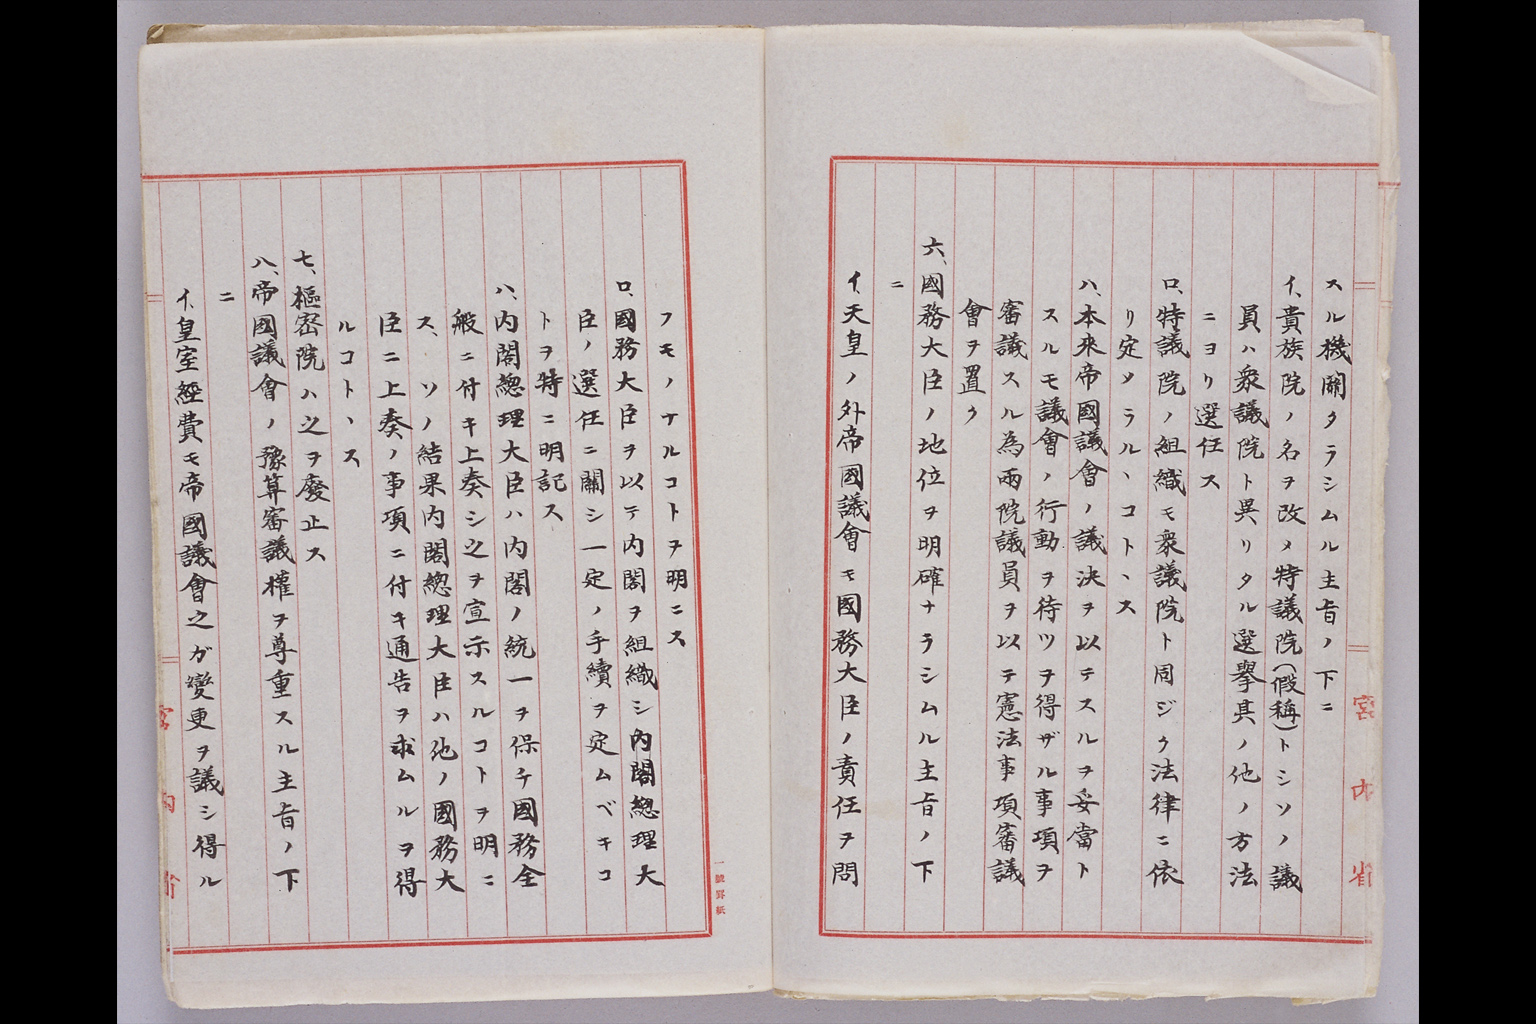 スル機關タラシムル主旨ノ下ニ
イ、貴族院ノ名ヲ改メ特議院(假稱)トシソノ議
員ハ衆議院ト異リタル選擧其ノ他ノ方法
ニヨリ選任ス
ロ、特議院ノ組織モ衆議院ト同ジク法律ニ依
リ定メラルヽコトヽス
ハ、本來帝國議會ノ議決ヲ以テスルヲ妥當ト
スルモ議會ノ行動ヲ待ツヲ得ザル事項ヲ
審議スル為兩院議員ヲ以テ憲法事項審議
會ヲ置ク
六、國務大臣ノ地位ヲ明確ナラシムル主旨ノ下
ニ
イ、天皇ノ外帝國議會モ國務大臣ノ責任ヲ問
宮内省
フモノナルコトヲ明ニス
ロ、國務大臣ヲ以テ内閣ヲ組織シ内閣總理大
臣ノ選任ニ關シ一定ノ手續ヲ定ムベキコ
トヲ特ニ明記ス
ハ、内閣總理大臣ハ内閣ノ統一ヲ保チ國務全
般ニ付キ上奏シ之ヲ宣示スルコトヲ明ニ
ス、ソノ結果内閣總理大臣ハ他ノ國務大
臣ニ上奏ノ事項ニ付キ通告ヲ求ムルヲ得
ルコトヽス
七、樞密院ハ之ヲ廢止ス
八、帝國議會ノ豫算審議權ヲ尊重スル主旨ノ下
ニ
イ、皇室經費モ帝國議會之ガ變更ヲ議シ得ル
一號罫紙
宮内省